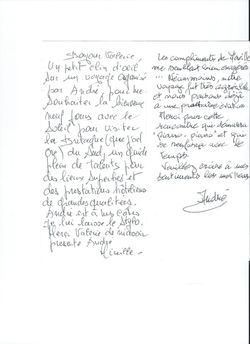 Bonjour Valérie,
Un petit clin d'oeil
sur un voyage organisé
par André, pour me
souhaiter la bienvenue
neuf jours avec le
soleil pour visiter
la Bretagne (que j'ad
ore) du Sud, un guide
plein de talents pour
des lieux superbes et
des prestations hôtelières
de grandes qualités.
André est à mes côtés
je lui laisse le stylo.
Merci Valérie de m'avoir
présenté André
Mireille
Les compliments de
me semblent bien exagérés
... Néanmoins, notre
voyage fut très agréable
et nous pensons déjà
à une prochaine
Merci pour cette
rencontre qui démarra
piano-piano et qui
se renforce avec le
temps.
Veuillez croire à mes
sentiments les meilleurs
André